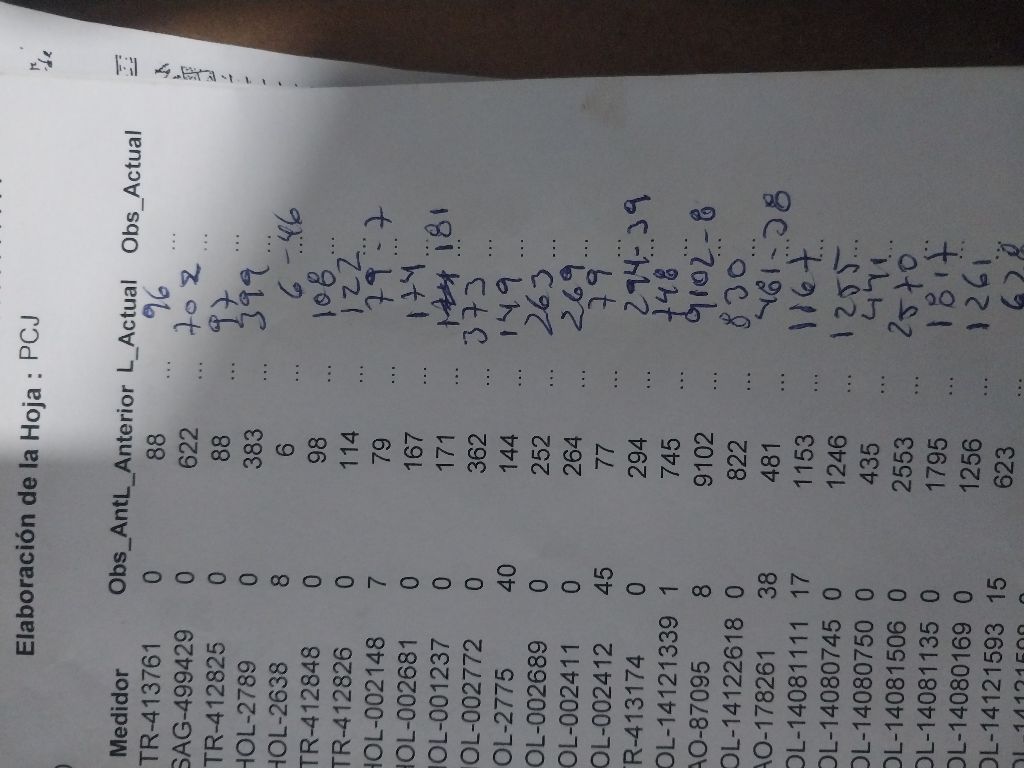 Elaboración de la Hoja : PCJ
Medidor Obs_AntL_Anterior L_Actual Obs_Actual
TR-413761 0 88 ... 96 ...
SAG-499429 0 622 ... 702 ...
TR-412825 0 88 ... 97 ...
HOL-2789 0 383 ... 399 ...
HOL-2638 8 6 ... 6 - 46 ...
TR-412848 0 98 ... 108 ...
TR-412826 0 114 ... 122 ...
HOL-002148 7 79 ... 79 - 7 ...
HOL-002681 0 167 ... 174 ...
HOL-001237 0 171 ... 181 ...
HOL-002772 0 362 ... 373 ...
OL-2775 40 144 ... 149 ...
OL-002689 0 252 ... 263 ...
OL-002411 0 264 ... 269 ...
OL-002412 45 77 ... 79 ...
TR-413174 0 294 ... 294-39 ...
OL-14121339 1 745 ... 748 ...
AO-87095 8 9102 ... 9102-8 ...
OL-14122618 0 822 ... 830 ...
AO-178261 38 481 ... 481-38 ...
OL-14081111 17 1153 ... 1167 ...
OL-14080745 0 1246 ... 1255 ...
OL-14080750 0 435 ... 441 ...
OL-14081506 0 2553 ... 2570 ...
OL-14081135 0 1795 ... 1817 ...
OL-14080169 0 1256 ... 1261 ...
OL-14121593 15 623 ... 628 ...